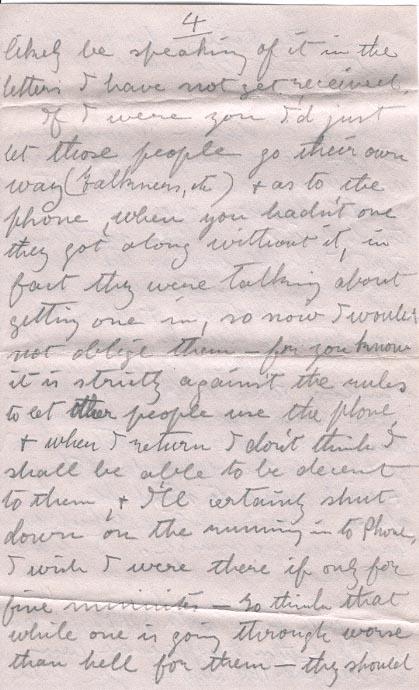 4
likely be speaking of it in the
letters I have not yet received.
If I were you I'd just
let those people go their own
way (Falkners, etc) + as to the
phone, when you hadn't one
they got along without it, in
fact they were talking about
getting one in, so now I would
not oblige them - for you know
it is strictly against the rules
to let other people use the phone,
+ when I return I don't think I
shall be able to be decent
to them, + I'll certainly shut
down on the running in to Phone,
I wish I were there if only for
five minutes - to think that
while one is going through worse
than hell for them - they should